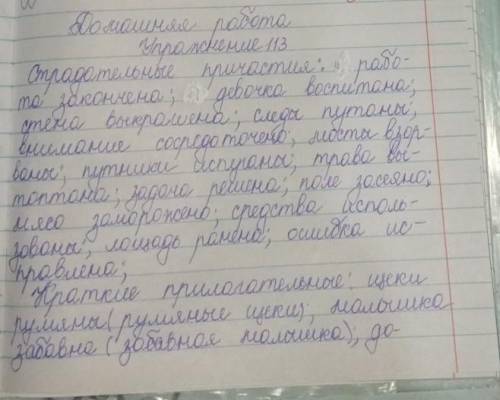 Домашняя работа
Упражнение 113
Страдательные причастия: рабо-
та закончена; девочка воспитана;
стена выкрашена; следы путаны;
внимание сосредоточено; мосты взор-
ваны; путники испуганы; трава вы-
топтана; задача решена; поле засеяно;
мясо заморожено; средства исполь-
зованы; лощадь ранена; ошибка ис-
правлена;
Краткие прилагательные: щеки
румяны (румяные щеки); малышка
забавна (забавная малышка); до-